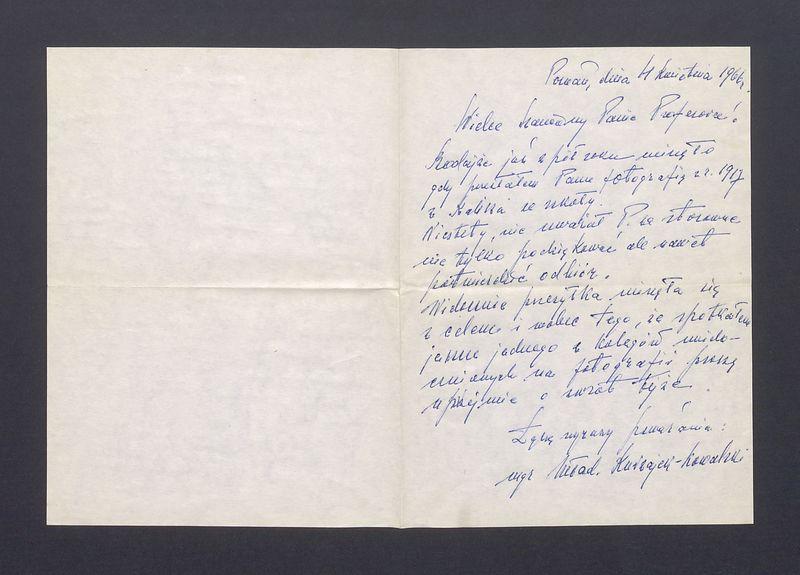 Poznań, dnia 4 kwietnia 1966 r.
Wielce Szanowny Panie Profesorze!
już z pół roku minęło
gdy przesłałem Panu fotografię z r. 1917
z Kalisza ze szkoły.
Niestety, nie uważał P. za stosowne
nie tylko podziękować ale nawet
potwierdzić odbiór.
Widocznie przesyłka minęła się
z celem i wobec tego, że spotkałem
jeszcze jednego z kolegów uwido-
cznionych na fotografii proszę
uprzejmie o zwrot tejże.
Łączę wyrazy poważania:
mgr Wład. -Kowalski